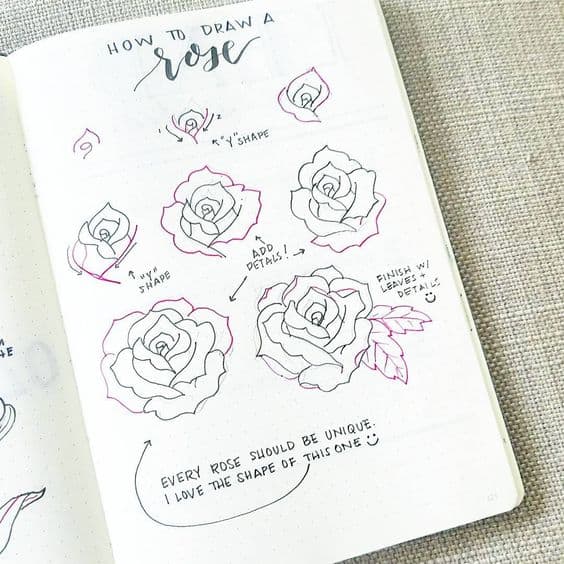 HOW TO DRAW A
rose
1
2
"Y" SHAPE
"Y"
SHAPE
ADD
DETALS!
FINISH W/
LEAVES +
DETAILS
EVERY ROSE SHOULD BE UNIQUE.
I LOVE THE SHAPE OF THIS ONE